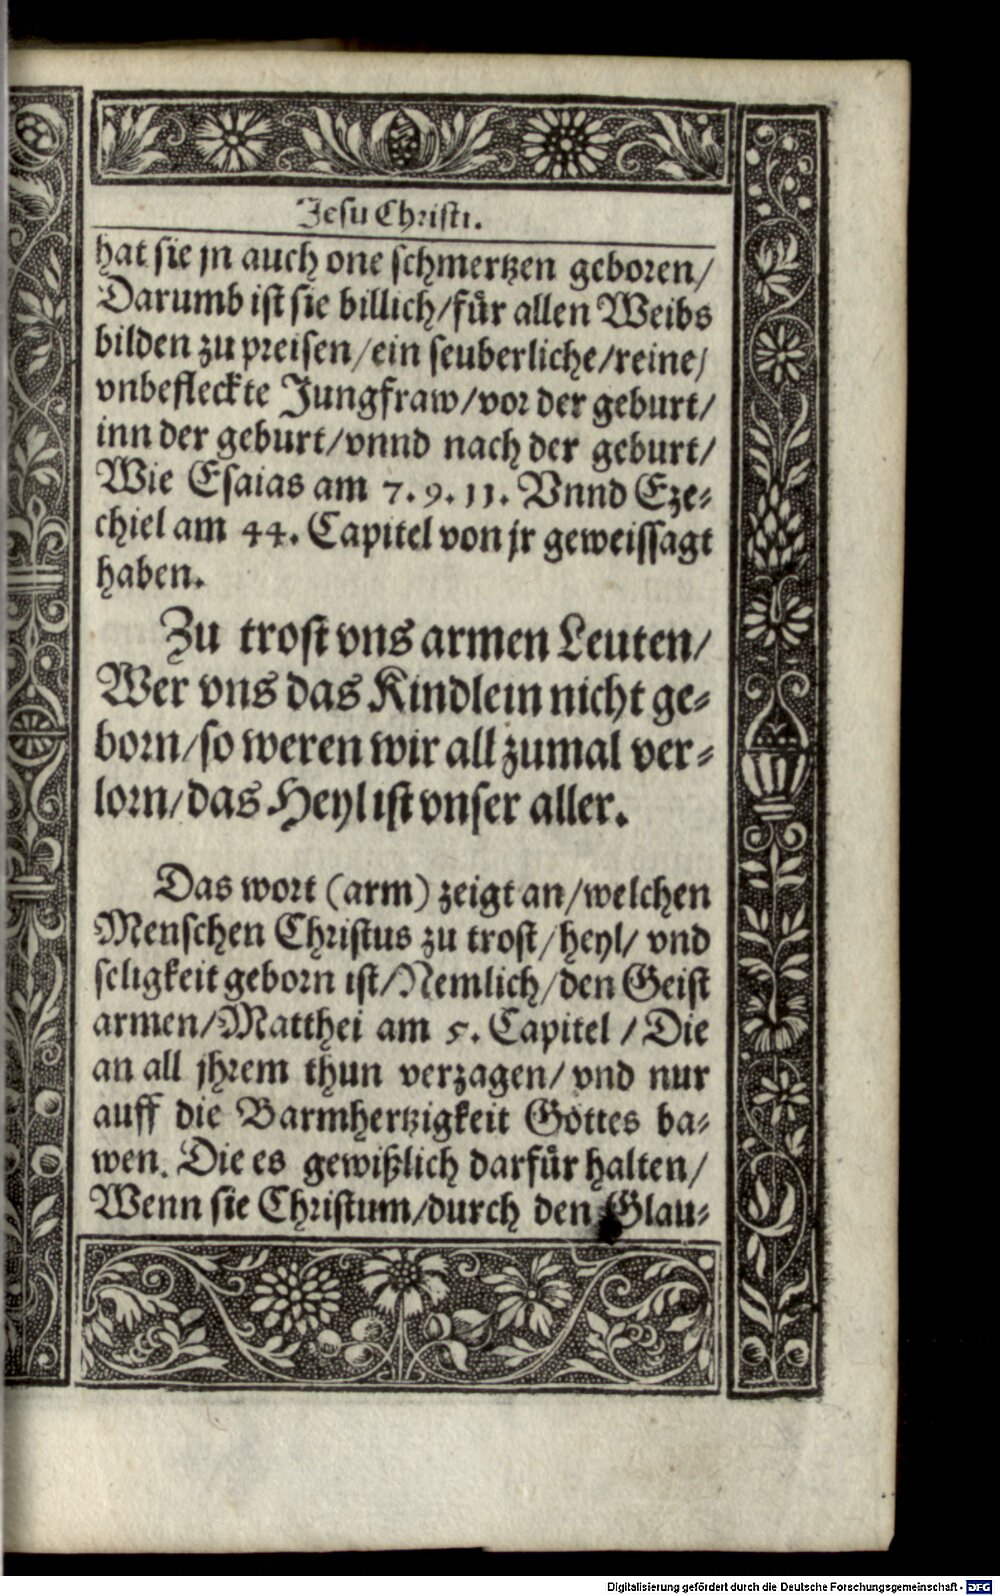 Jesu Christi.
hat sie jn auch one schmertzen geboren/
Darumb ist sie billich/für allen Weibs
bilden zu preisen/ein seuberliche/reine/
vnbefleckte Jungfraw/vor der geburt/
inn der geburt/vnnd nach der geburt/
Wie Esaias am 7. 9. 11. Vnnd Eze-
chiel am 44. Capitel von jr geweissagt
haben.
Zu trost vns armen Leuten/
Wer vns das Kindlein nicht ge-
born/so weren wir all zumal ver-
lorn/das Heyl ist vnser aller.
Das wort (arm) zeigt an/welchen
Menschen Christus zu trost/heyl/ vnd
seligkeit geborn ist/Nemlich/den Geist
armen/Matthei am 5. Capitel / Die
an all jhrem thun verzagen/ vnd nur
auff die Barmhertzigkeit Gottes ba-
wen. Die es gewißlich darfür halten/
Wenn sie Christum/durch den Glau-
Digitalisierung gefördert durch die Deutsche Forschungsgemeinschaft - DFG